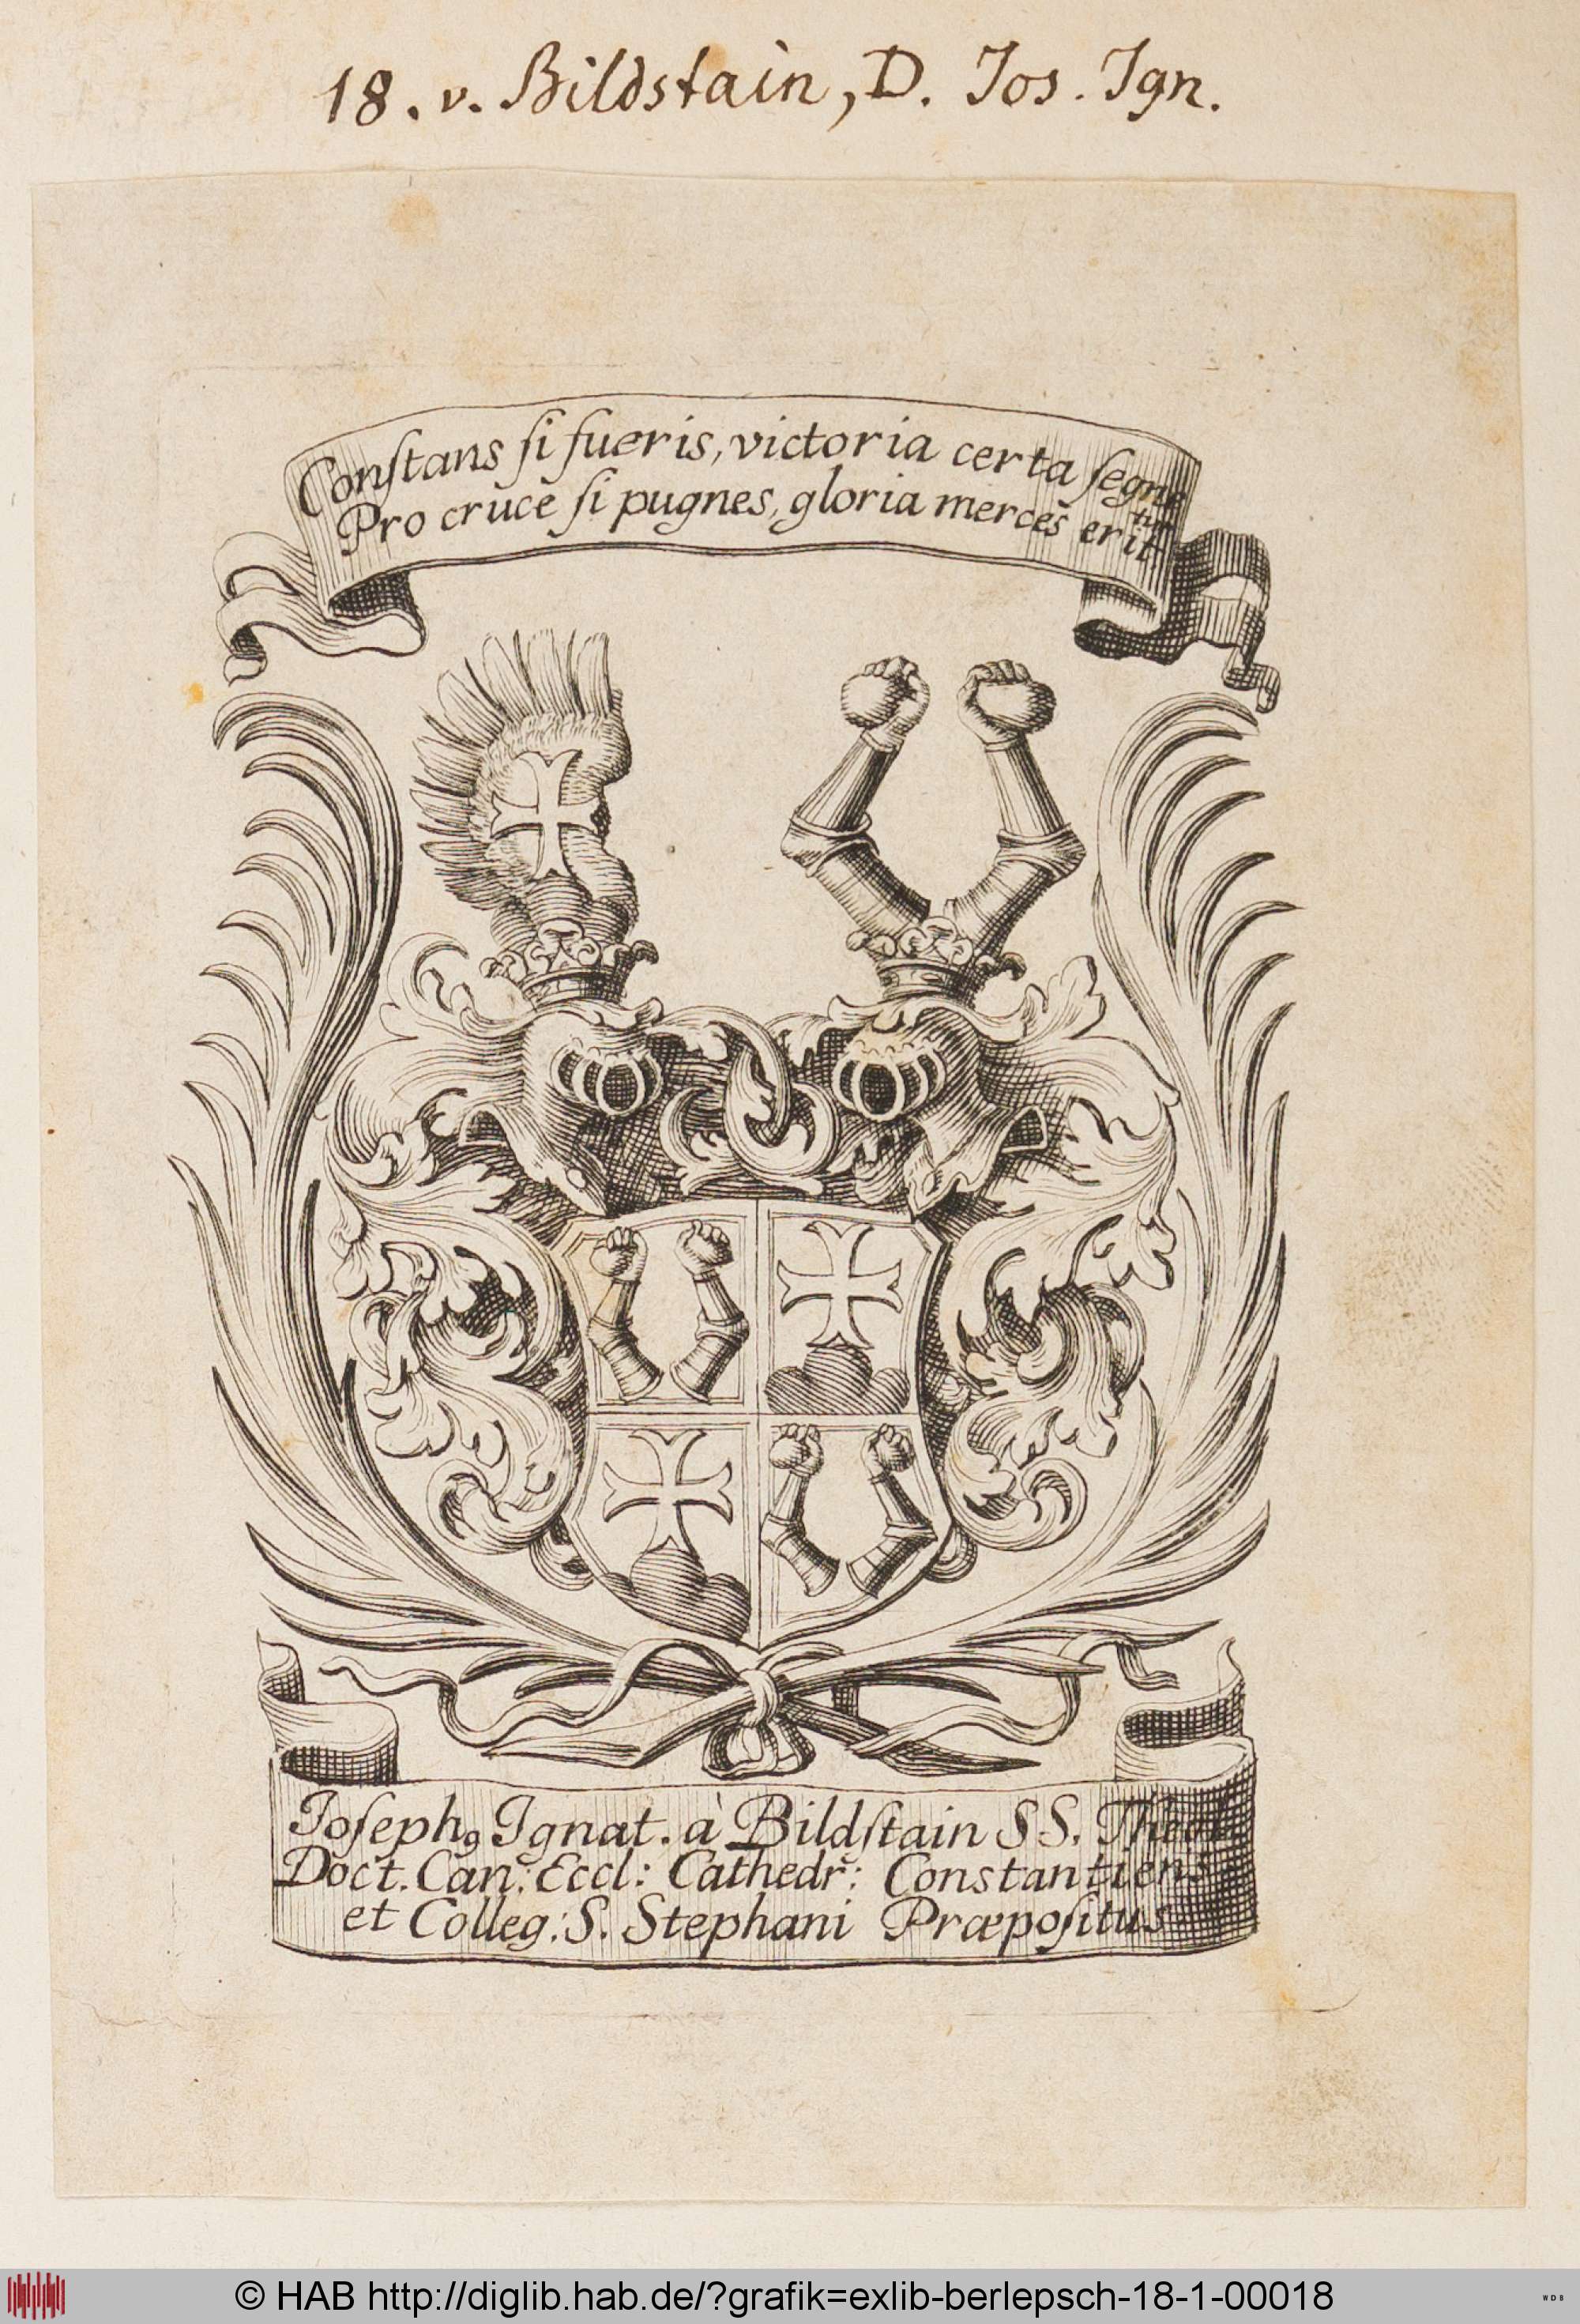 18. v. Bildstain, D. Jos. Ign.
Conſtans ſi fueris, victoria certa ſeque
tur
Pro cruce ſi pugnes, gloria merces erit
Joſephꝰ Ignat. à Bildſtain SS. Theol.
Doct. Can: Eccl: Cathedr: Constantiens
et Colleg: S. Stephani Præpoſitus
© HAB http://diglib.hab.de/?grafik=exlib-berlepsch-18-1-00018
WDB